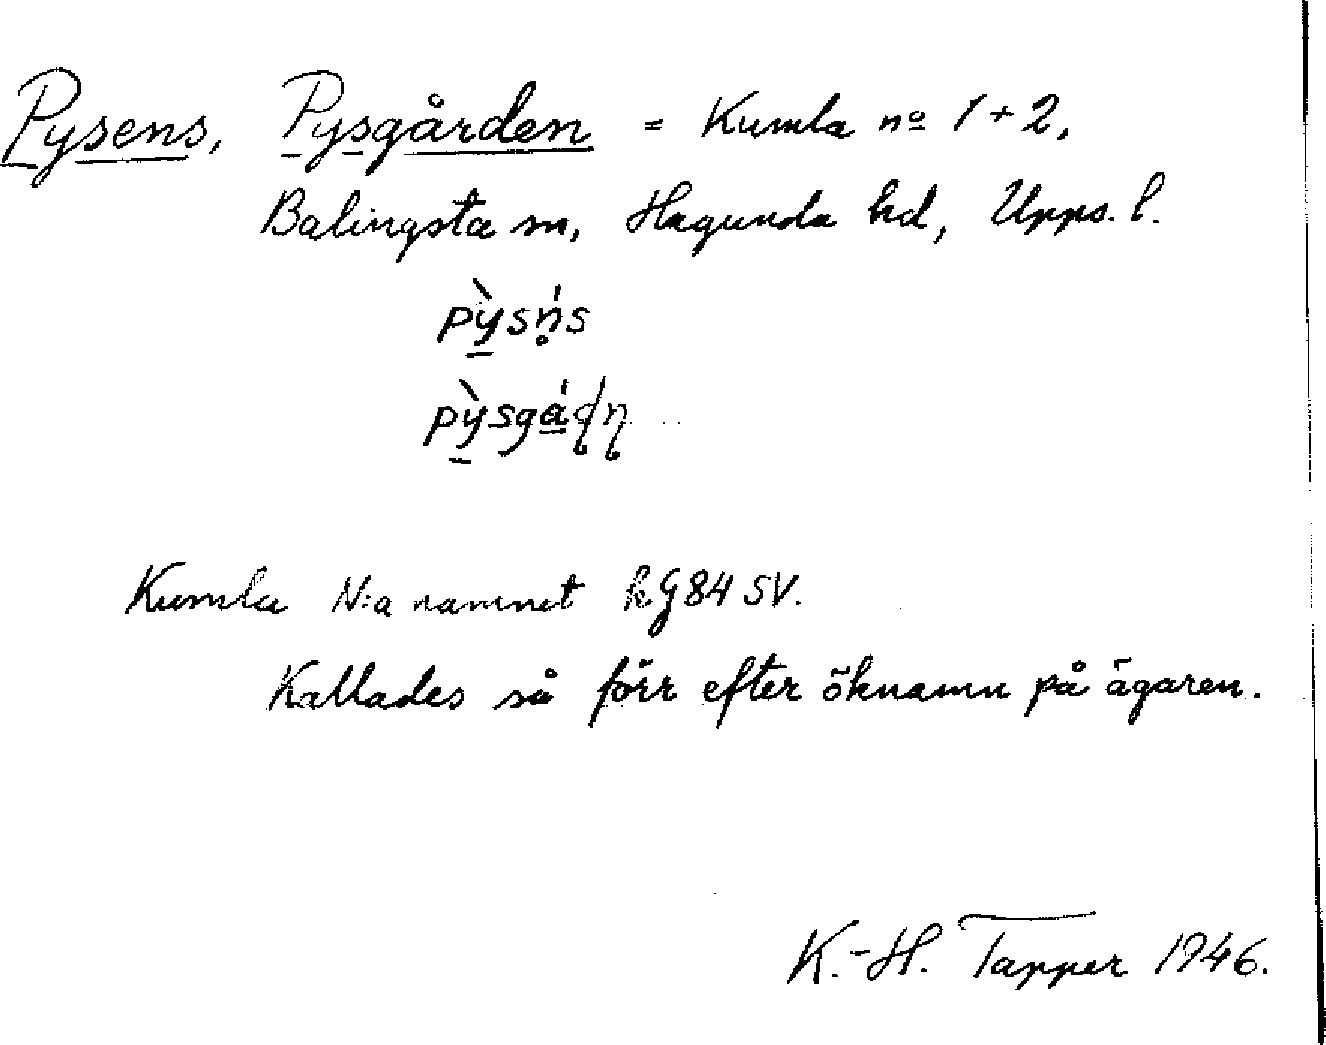 Pysens, Pysgården = Kumla nº 1+2,
Balingsta sn, Hagunda hd, Upps. l.
pỳsń̥s
pỳsgáɖɳ
Kumla N:a namnet kG84 SV.
Kallades så förr efter öknamn på ägaren.
K.-H. Tapper 1946.